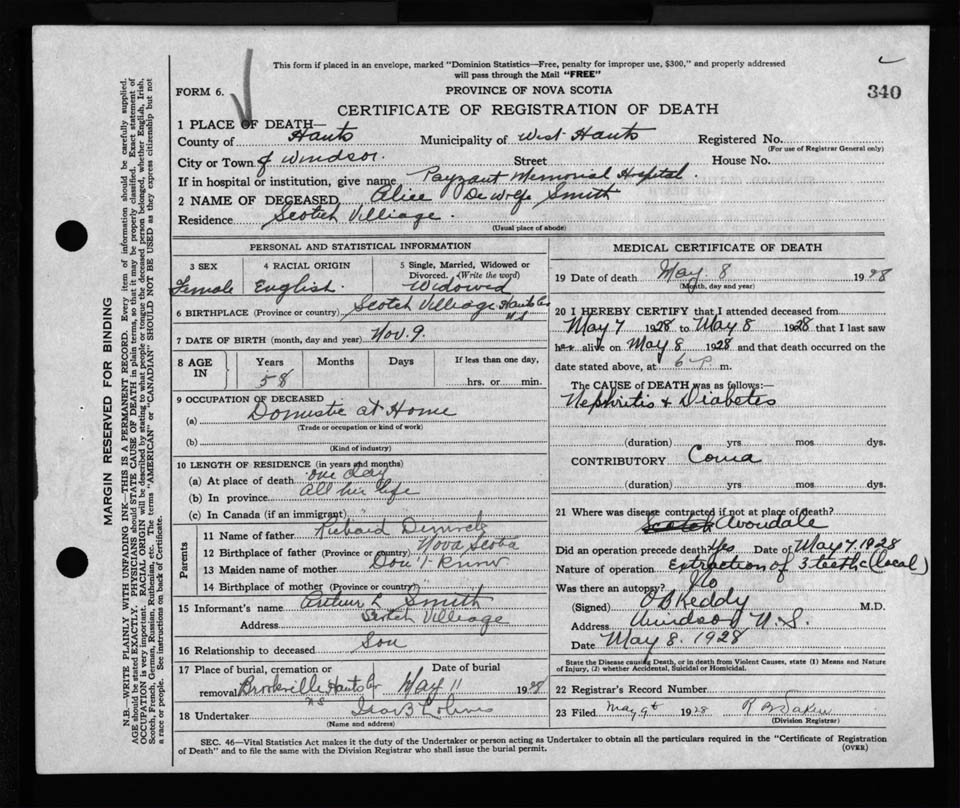 This form if placed in an envelope, marked "Dominion Statistics—Free, penalty for improper use, $300," and properly addressed
will pass through the Mail "FREE"
FORM 6.
PROVINCE OF NOVA SCOTIA
340
CERTIFICATE OF REGISTRATION OF DEATH
1 PLACE OF DEATH—
County of Hants Municipality of West Hants Registered No.
(For use of Registrar General only)
City or Town of Windsor. Street House No.
If in hospital or institution, give name Payzant Memorial Hospital.
2 NAME OF DECEASED Alice DeWolfe Smith
Residence Scotch Villiage.
(Usual place of abode)
PERSONAL AND STATISTICAL INFORMATION
3 SEX 4 RACIAL ORIGIN 5 Single, Married, Widowed or Divorced. (Write the word)
Female English. Widowed
6 BIRTHPLACE (Province or country) Scotch Villiage Hants Co
N S
7 DATE OF BIRTH (month, day and year) Nov. 9.
8 AGE IN Years Months Days If less than one day,
58 hrs. or min.
9 OCCUPATION OF DECEASED
(a) Domestic at Home
(Trade or occupation or kind of work)
(b)
(Kind of industry)
10 LENGTH OF RESIDENCE (in years and months)
(a) At place of death one day
(b) In province all her life
(c) In Canada (if an immigrant)
Parents
11 Name of father Richard
12 Birthplace of father (Province or country) Nova Scotia
13 Maiden name of mother Don't Know
14 Birthplace of mother (Province or country)
15 Informant's name Arthur Smith
Address Scotch Villiage
16 Relationship to deceased Son
17 Place of burial, cremation or removal Date of burial
Brookville Hants Co May 11 1928
N S
18 Undertaker
(Name and address)
MEDICAL CERTIFICATE OF DEATH
19 Date of death May. 8 1928
(Month, day and year)
20 I HEREBY CERTIFY that I attended deceased from
May 7 1928 to May 8 1928 that I last saw
her alive on May 8 1928 and that death occurred on the
date stated above, at 6 P m.
The CAUSE of DEATH was as follows:—
Nephritis & Diabetes
(duration) yrs mos dys.
CONTRIBUTORY Coma
(duration) yrs mos dys.
21 Where was disease contracted if not at place of death?
Avondale
Did an operation precede death? Yes Date of May 7, 1928
Nature of operation Extraction of 3 teeth (local)
Was there an autopsy? No
(Signed) O B Keddy M.D.
Address Windsor N. S.
Date May 8. 1928
State the Disease causing Death, or in death from Violent Causes, state (1) Means and Nature
of Injury, (2) whether Accidental, Suicidal or Homicidal.
22 Registrar's Record Number
23 Filed May 9th 1928
(Division Registrar)
SEC. 46—Vital Statistics Act makes it the duty of the Undertaker or person acting as Undertaker to obtain all the particulars required in the "Certificate of Registration
of Death" and to file the same with the Division Registrar who shall issue the burial permit. (OVER)
MARGIN RESERVED FOR BINDING
N.B.—WRITE PLAINLY WITH UNFADING INK—THIS IS A PERMANENT RECORD. Every item of information should be carefully supplied.
AGE should be stated EXACTLY. PHYSICIANS should STATE CAUSE OF DEATH in plain terms, so that it may be properly classified. Exact statement of
OCCUPATION is very important. RACIAL ORIGIN will be described by stating to what people or tongue the deceased person belonged, whether English, Irish,
Scotch, French, German, Russian, Ruthenian, etc. The terms "AMERICAN" or "CANADIAN" SHOULD NOT BE USED as they express citizenship but not
a race or people. See instructions on back of Certificate.